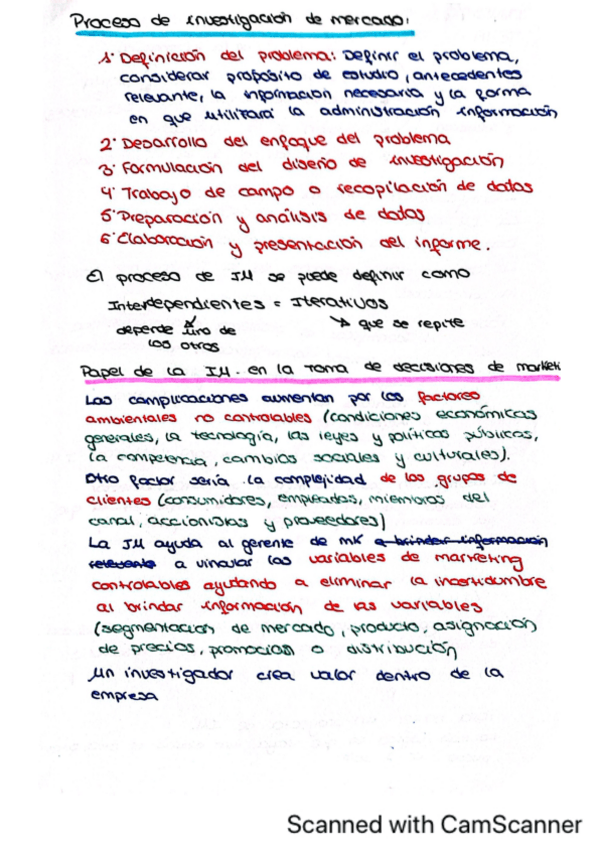 Proceso de investigación de mercado:
1· Definición del problema: Definir el problema,
considerar propósito de estudio, antecedentes
relevante, la información necesaria y la forma
en que utilizará la administración información
2· Desarrollo del enfoque del problema
3· Formulación del diseño de investigación
4· Trabajo de campo o recopilación de datos
5· Preparación y análisis de datos
6· Elaboración y presentación del informe.
El proceso de IM se puede definir como
Interdependientes = Iterativos
depende uno de
los otros
que se repite
Papel de la IM. en la toma de decisiones de marketi
Las complicaciones aumentan por los factores
ambientales no controlables (condiciones económicas
generales, la tecnología, las leyes y políticas públicas,
la competencia, cambios sociales y culturales).
Otro factor sería la complejidad de los grupos de
clientes (consumidores, empleados, miembros del
canal, accionistas y proveedores)
La IM ayuda al gerente de mk a brindar información
relevante a vincular las variables de marketing
controlables ayudando a eliminar la incertidumbre
al brindar información de las variables
(segmentación de mercado, producto, asignación
de precios, promoción o distribución
Un investigador crea valor dentro de la
empresa
Scanned with CamScanner